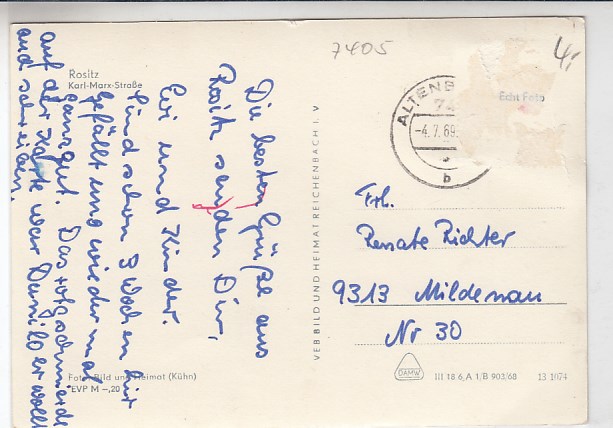 7405
4,-
Rositz
Karl-Marx-Straße
Die besten Grüße aus
Rositz senden Dir,
und Kinder.
Sind schon 3 Wochen hier
gefällt uns wieder mal
ganz gut. Das rotgeschmierde
auf der Karte war er wollt
auch schreiben.
Foto: Bild und Heimat (Kühn)
EVP M -,20
VEB BILD UND HEIMAT REICHENBACH I. V
ALTENB
-4.7.69
b
Echt Foto
Frl.
Renate Richter
9313 Mildenau
Nr 30
DAMW
III 18 6 A 1/B 903/68
13 1074